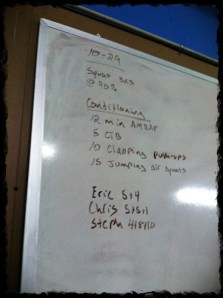 10-29
Squat 3x5
@
Conditioning
12 min AMRAP
5 CTB
10 Clapping push-ups
15 Jumping air squats
Eric 5+4
Chris
Steph